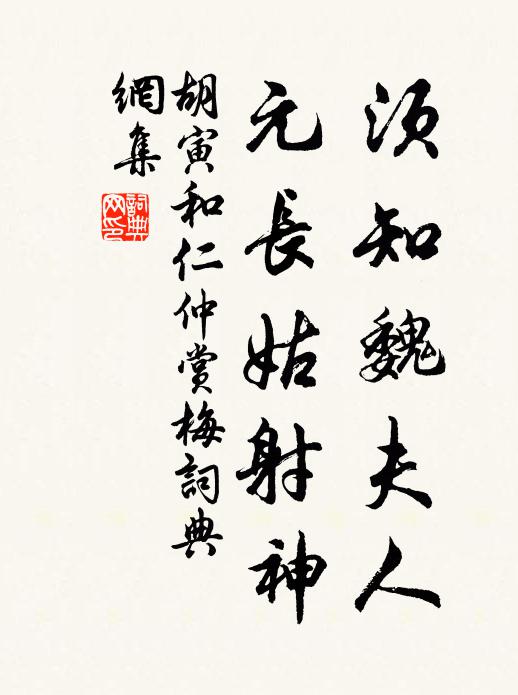 須知魏夫人
元長姑射神
胡寅和仁仲賞梅詞典
網集
詞典
网印